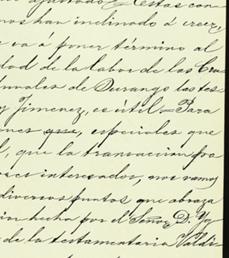 estas con-
nos han inclinado á creer,
e va á poner término al
dad de la labor de las Cru
bunales de Durango las tes
y Jimenez, es útil. Para
ones que, especiales que
l, que la transacion pro
interesados, nos vamos
diversos puntos que abraza
ion hecha por el Señor D. Yg
de la testamentaria Valdi